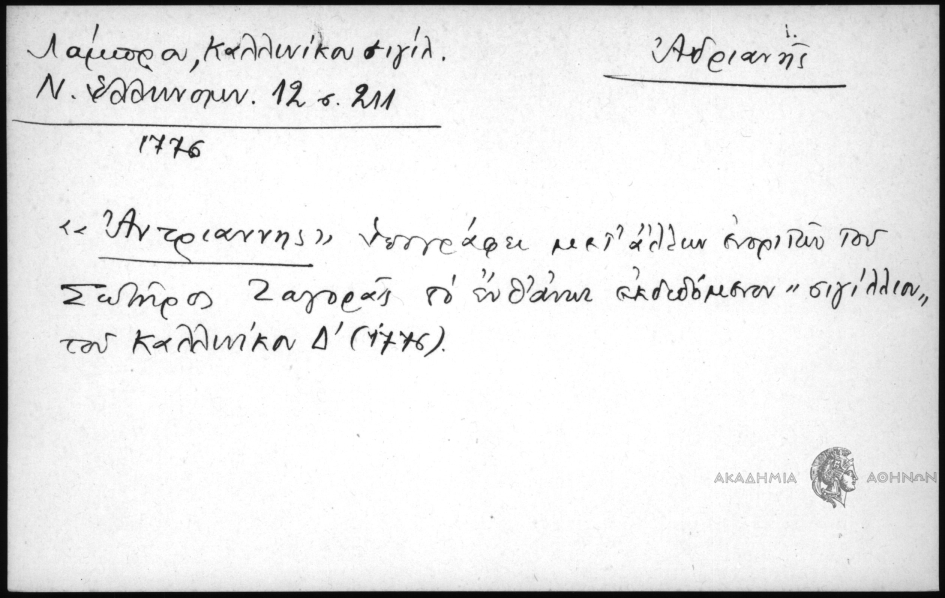 Λάμπρου, Καλλινίκου σιγίλ.
Ν. Ἑλληνομν. 12 σ. 211
1776
Ἀδριανής
«Ἀντριαννης» ὑπογράφει μετ' ἄλλων ἐνοριτῶν τοῦ
Σωτῆρος Ζαγορᾶς τὸ ἐνθ' ἄνω ἐκδιδόμενον "σιγίλλιον"
τοῦ Καλλινίκου Δ' (1776).
ΑΚΑΔΗΜΙΑ ΑΘΗΝΩΝ